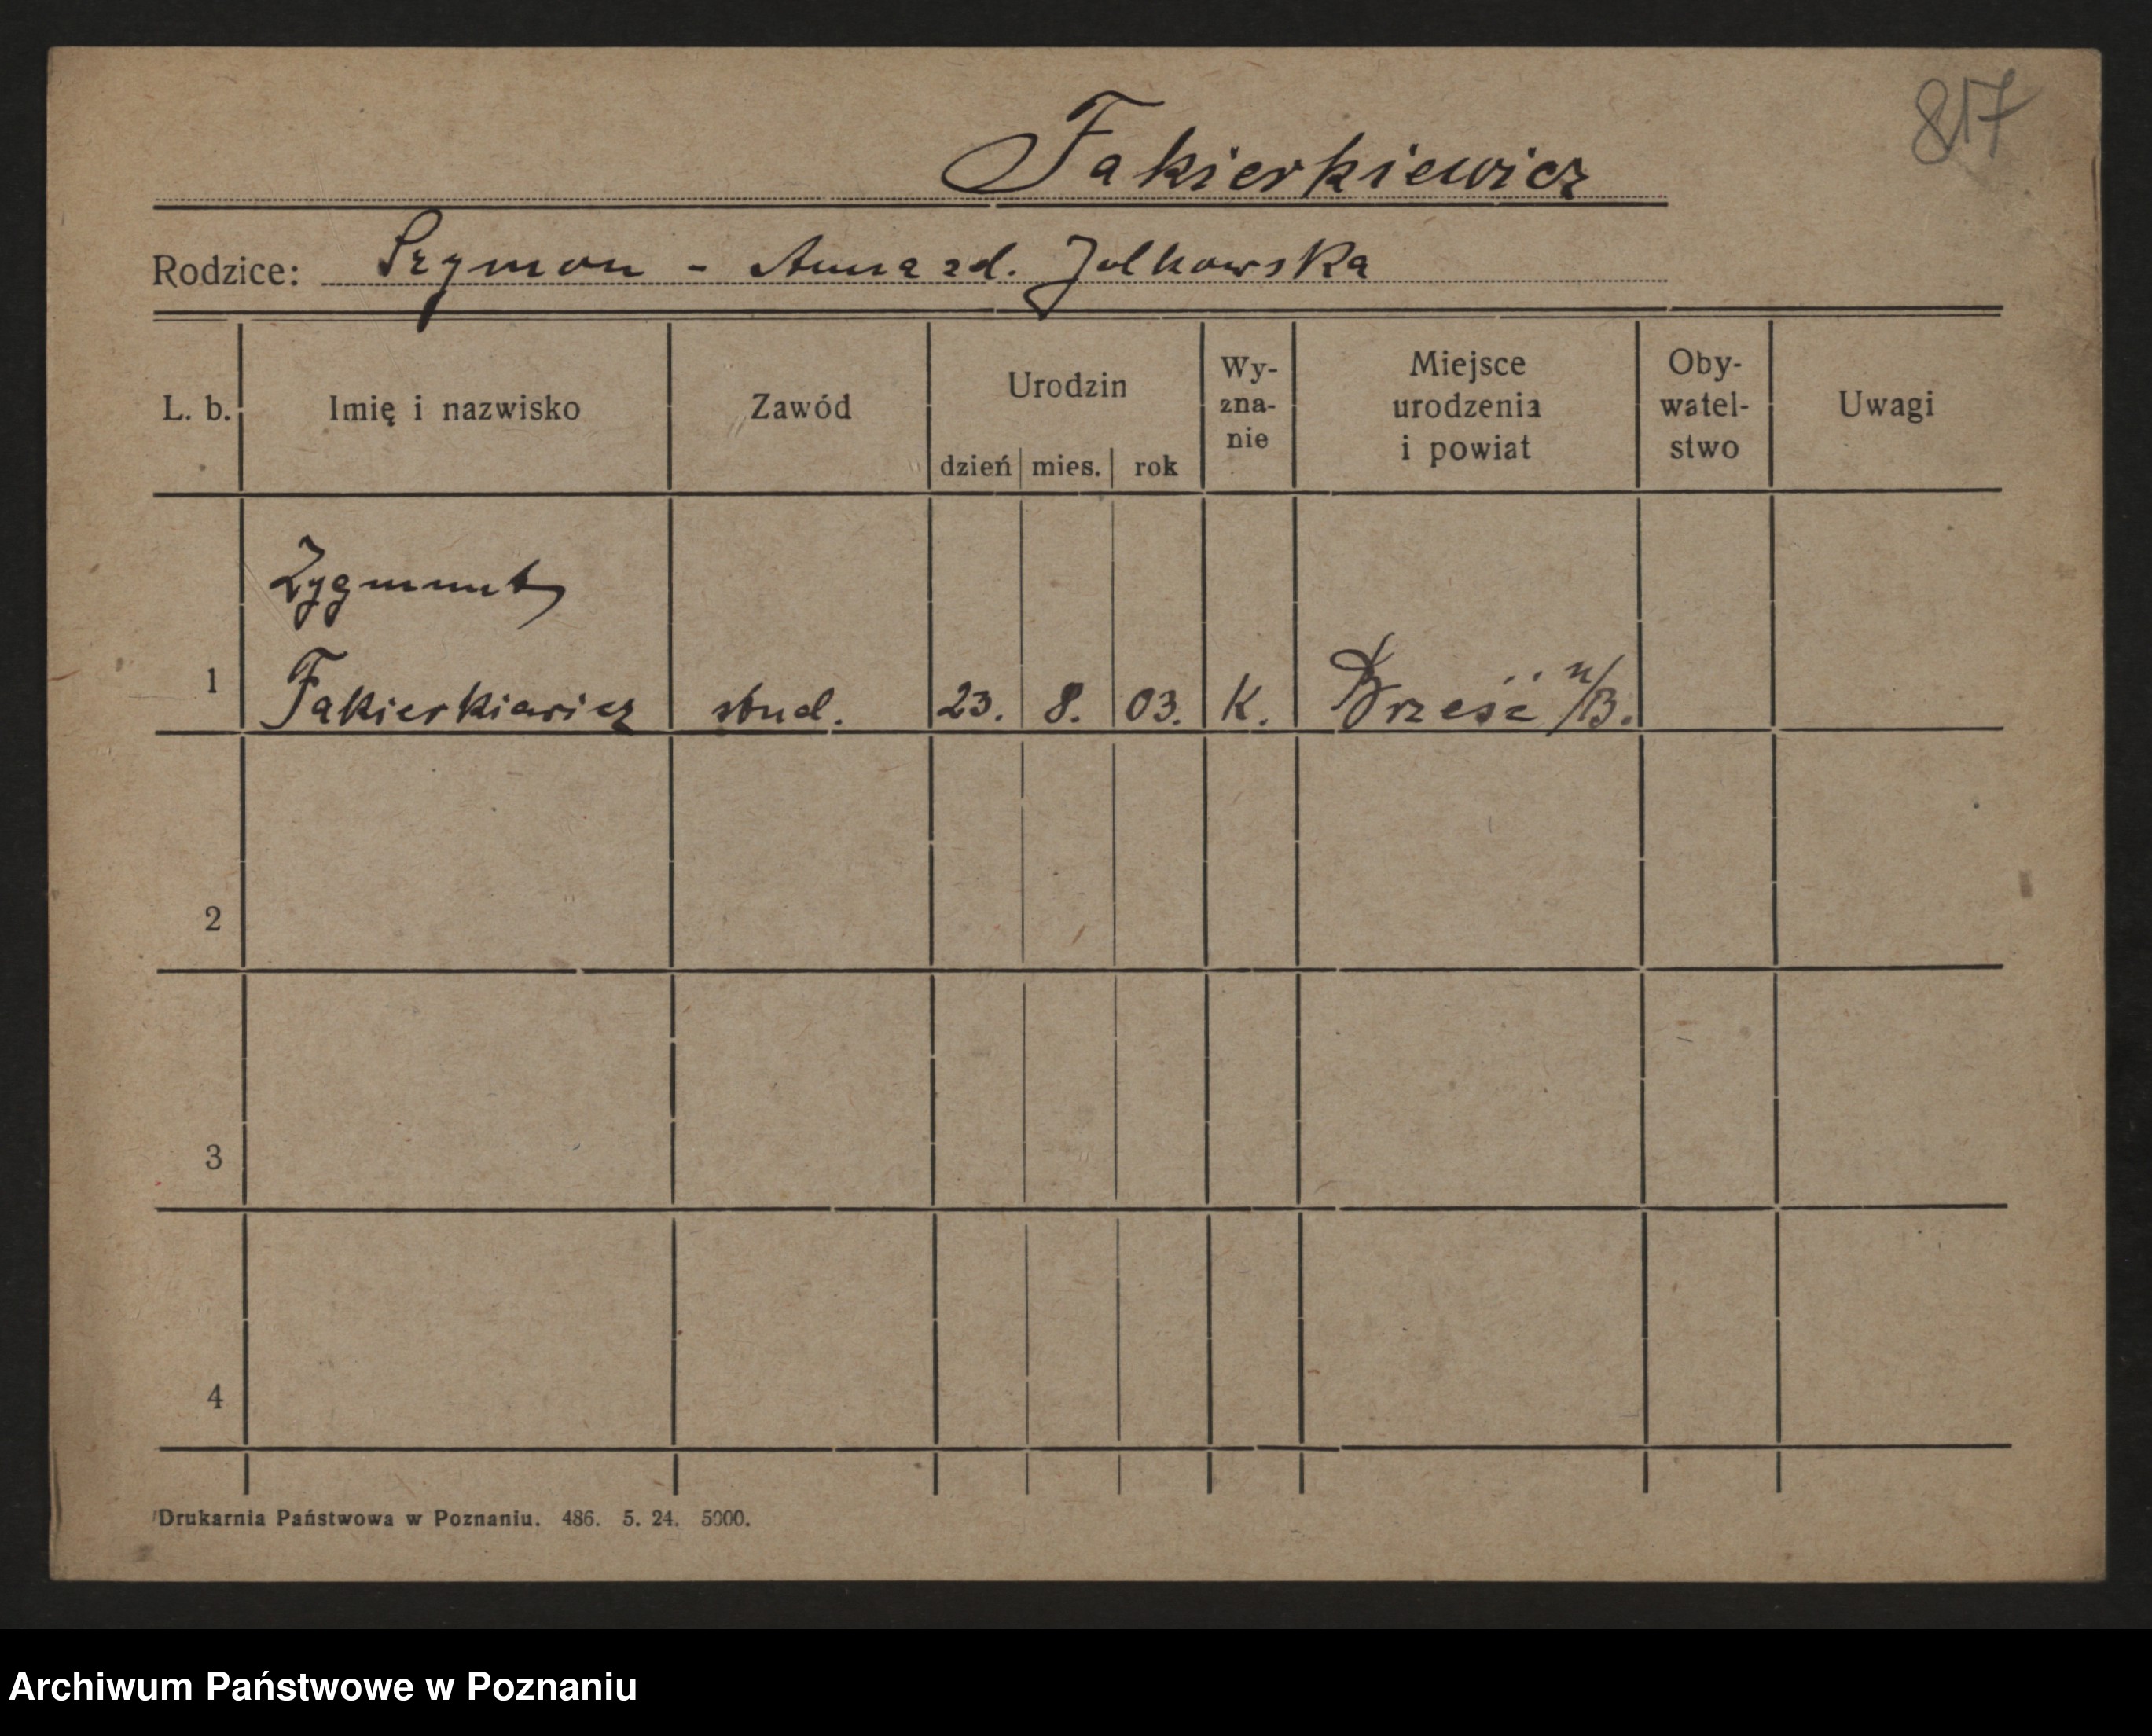 817
Fakierkiewicz
Rodzice: Szymon - Anna zd. Jolkowska
L. b. Imię i nazwisko Zawód Urodzin dzień mies. rok Wy- zna- nie Miejsce urodzenia i powiat Oby- watel- stwo Uwagi
Zygmunt
1 Fakierkiewicz stud. 23. 8. 03. K. Brześć n/B.
2
3
4
Drukarnia Państwowa w Poznaniu. 486. 5. 24. 5000.
Archiwum Państwowe w Poznaniu